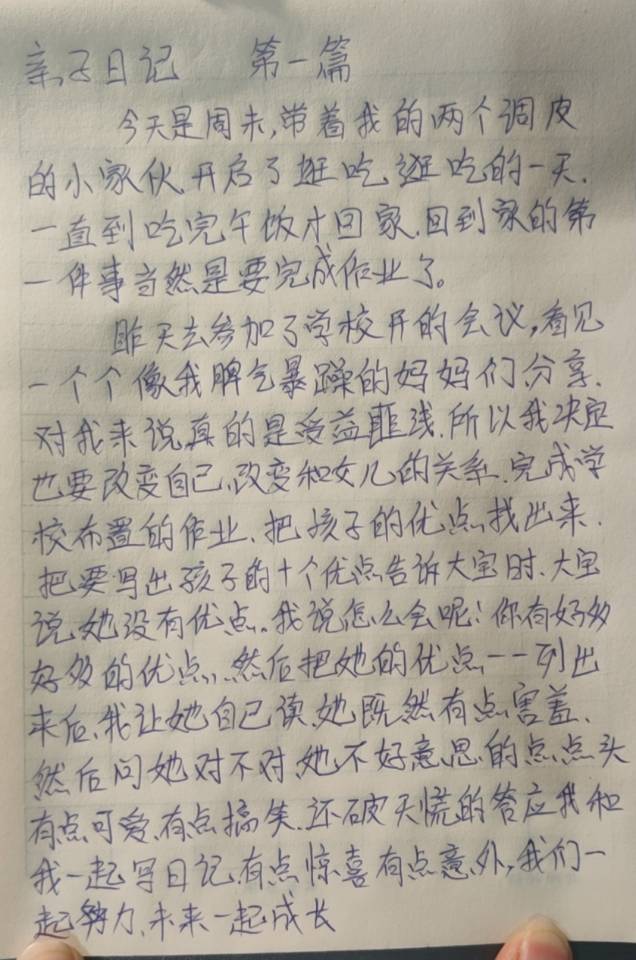 亲子日记 第一篇
今天是周末,带着我的两个调皮
的小家伙.开启了逛吃,逛吃的一天.
一直到吃完午饭才回家.回到家的第
一件事当然是要完成作业了。
昨天去参加了学校开的会议,看见
一个个像我脾气暴躁的妈妈们分享.
对我来说真的是受益匪浅.所以我决定
也要改变自己,改变和女儿的关系.完成学
校布置的作业、把孩子的优点找出来.
把要写出孩子的十个优点告诉大宝时、大宝
说她没有优点.我说怎么会呢!你有好多
好多的优点,然后把她的优点一一列出
来后,我让她自己读,她既然有点害羞、
然后问她对不对,她不好意思的点点头
有点可爱,有点搞笑.还破天慌的答应我和
我一起写日记,有点惊喜有点意外,我们一
起努力、未来一起成长